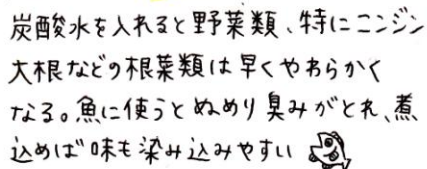 炭酸水を入れると野菜類、特にニンジン
大根などの根葉類は早くやわらかく
なる。魚に使うとぬめり臭みがとれ、煮
込めば味も染み込みやすい